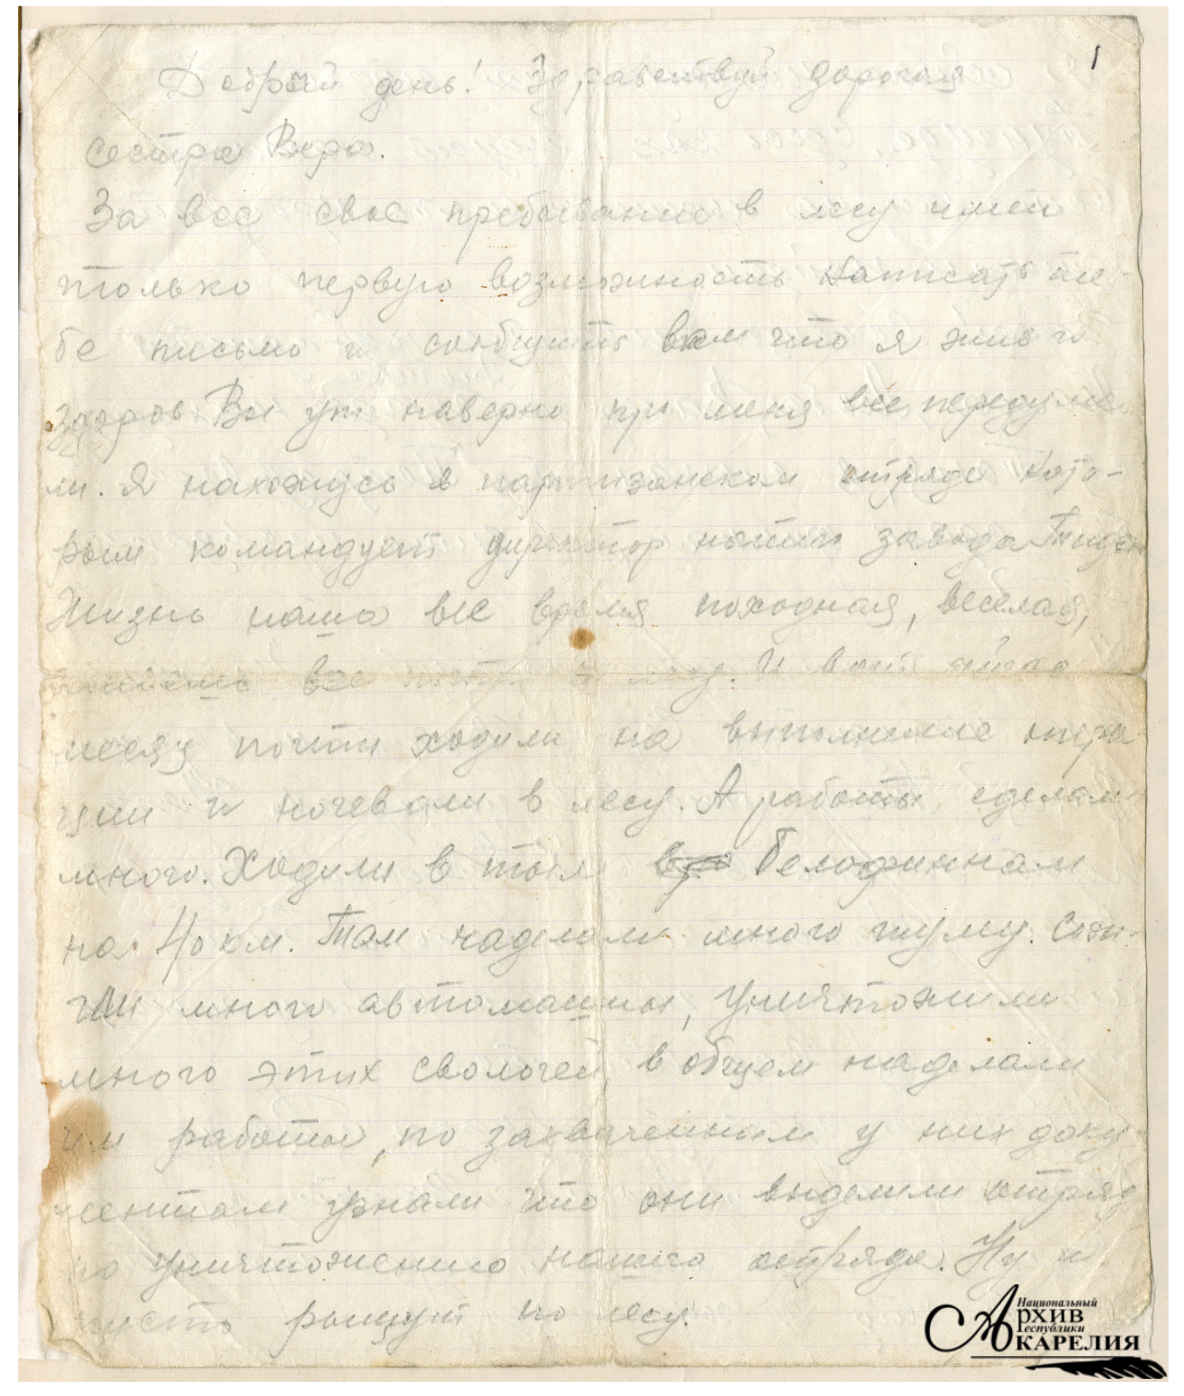 1
Добрый день! Здравствуй дорогая
сестра Вера.
За все свое пребывание в лесу имею
только первую возможность написать те-
бе письмо и сообщить вам что я жив и
здоров. Вы уж наверно про меня все переду́ма
ли. Я нахожусь в партизанском отряде кото-
рым командует директор нашего завода Тиден
Жизнь наша все время походная, веселая,
все в лесу. И вот
месяц почти ходили на выполнение опера
ции и ночевали в лесу. А работы сделали
много. Ходили в тыл белофиннам
на 40 км. Там наделали много шуму. Сож-
гли много автомашин, уничтожили
много этих сволочей, в общем наделали
им работы, по захваченным у них доку-
ментам узнали что они выделили отряд
по уничтожению нашего отряда. Ну и
пусть рыщут по лесу.
Национальный
АРХИВ
Республики
КАРЕЛИЯ